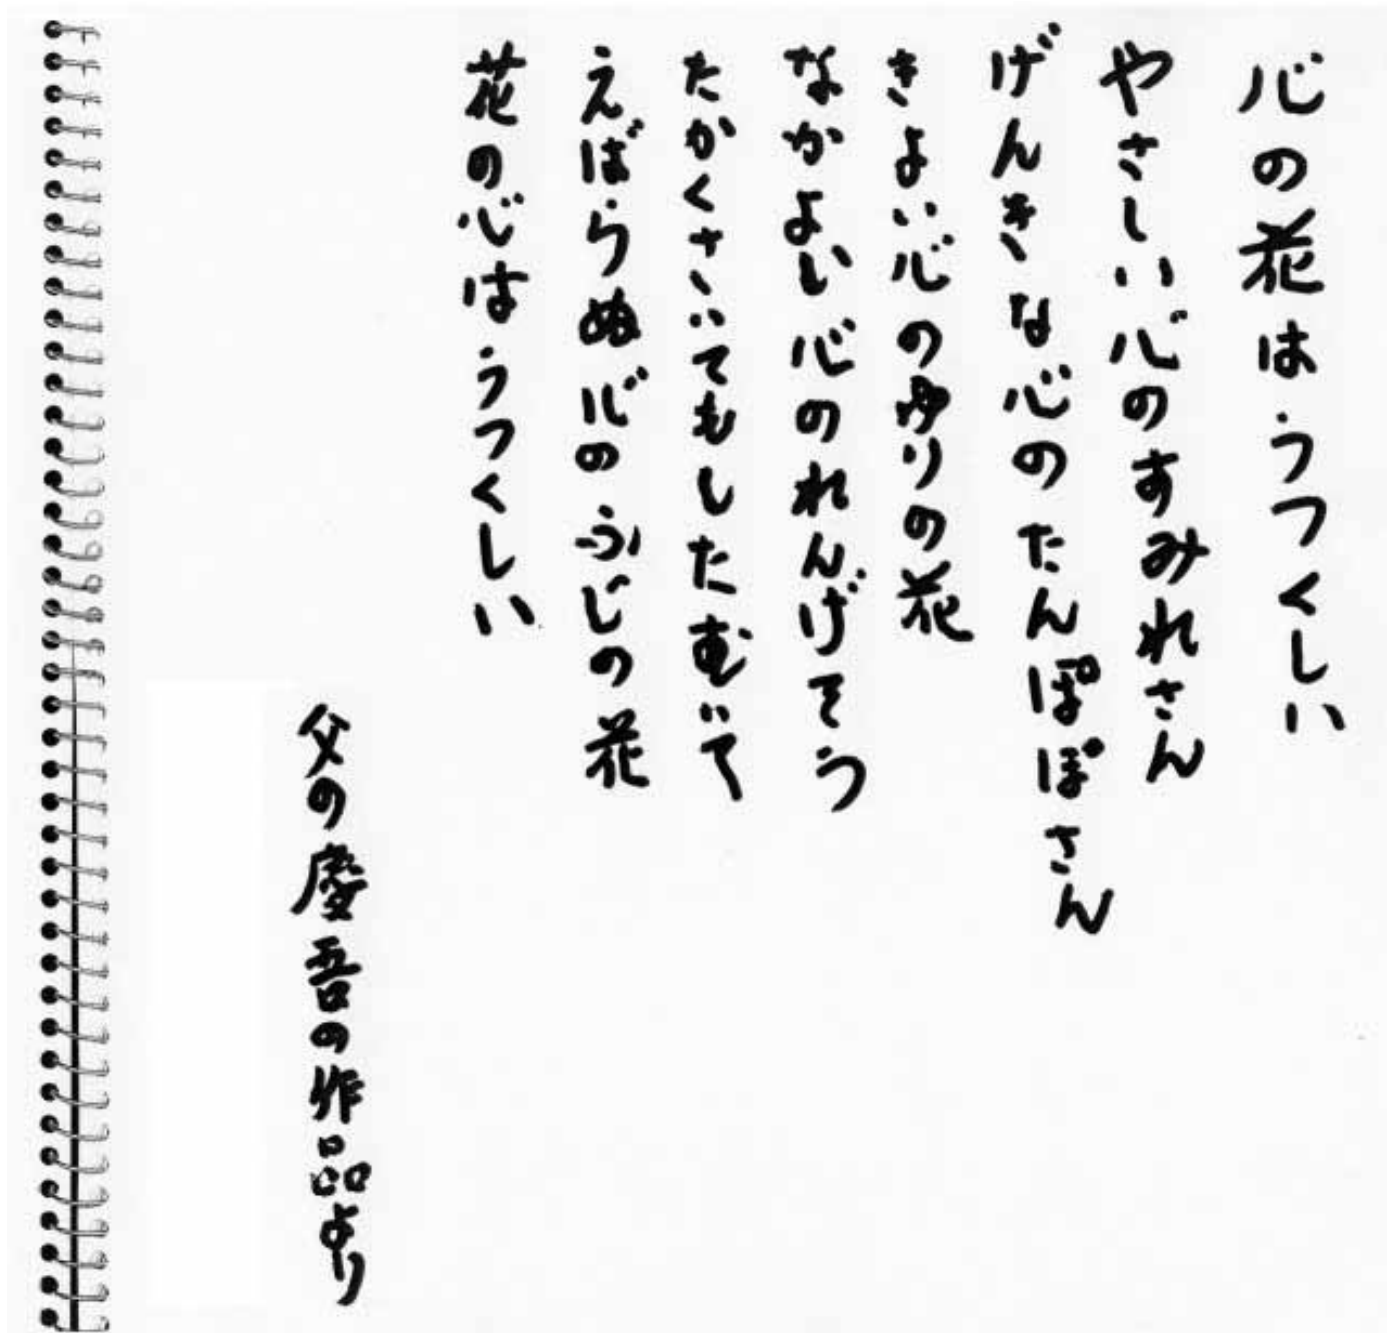 心の花はうつくしい
やさしい心のすみれさん
げんきな心のたんぽぽさん
きよい心のゆりの花
なかよい心のれんげそう
たかくさいてもしたむいて
えばらぬ心のふじの花
花の心はうつくしい
父の慶吾の作品より